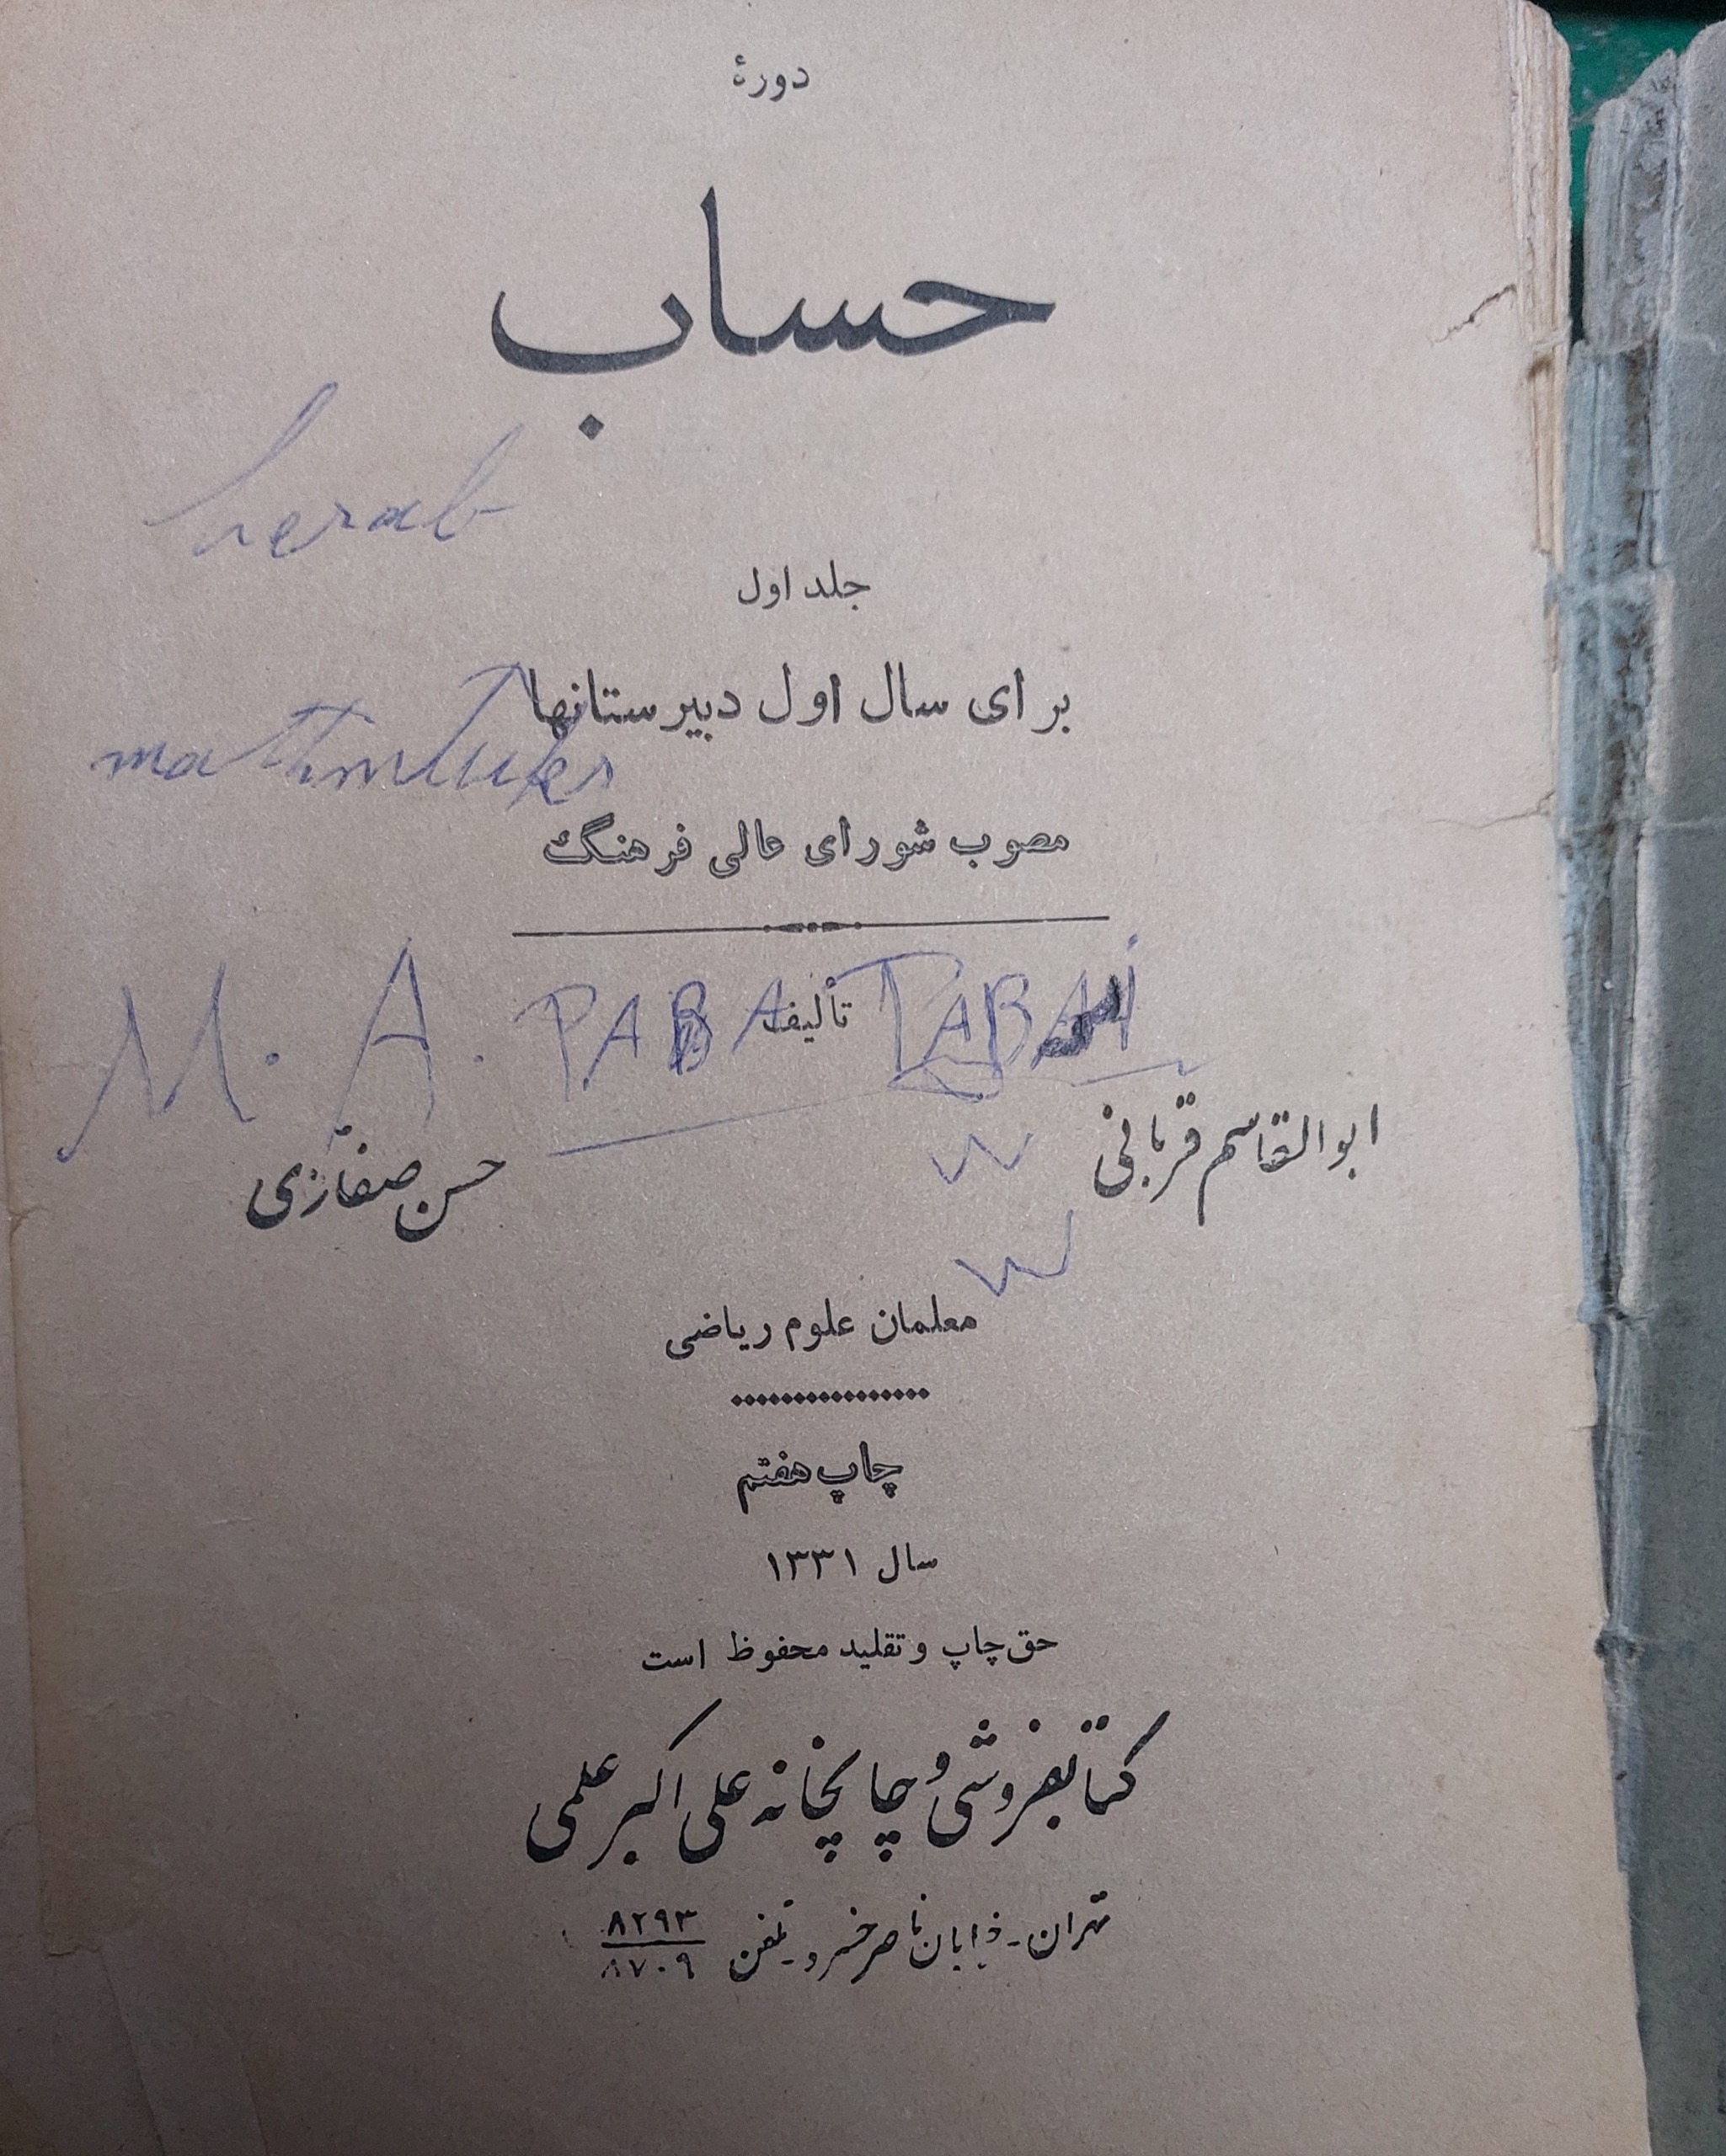 دورهٔ
حساب
hesab
جلد اول
برای سال اول دبیرستانها
مصوب شورای عالی فرهنگ
تألیف
M. A. PABA TABAi
ابوالقاسم قربانی
حسن صفاری
معلمان علوم ریاضی
چاپ هفتم
سال ۱۳۳۱
حق چاپ و تقلید محفوظ است
کتابفروشی و چاپخانه علی اکبر علمی
تهران - خیابان ناصرخسرو - تلفن ۸۲۹۳
۸۷۰۹